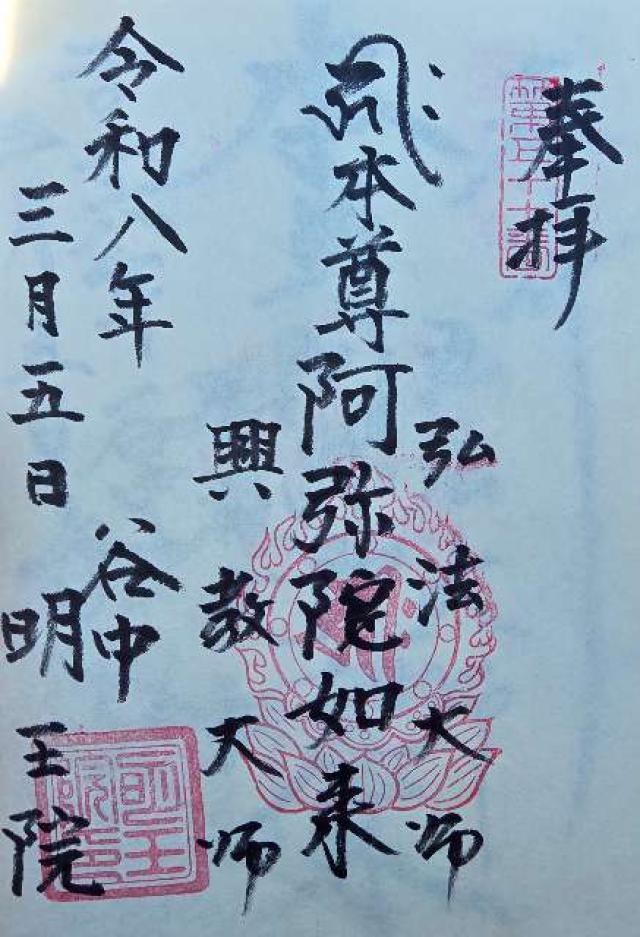 奉拝
弘法大師
本尊阿弥院如来
興教大師
令和八年
三月五日
谷中
明王院